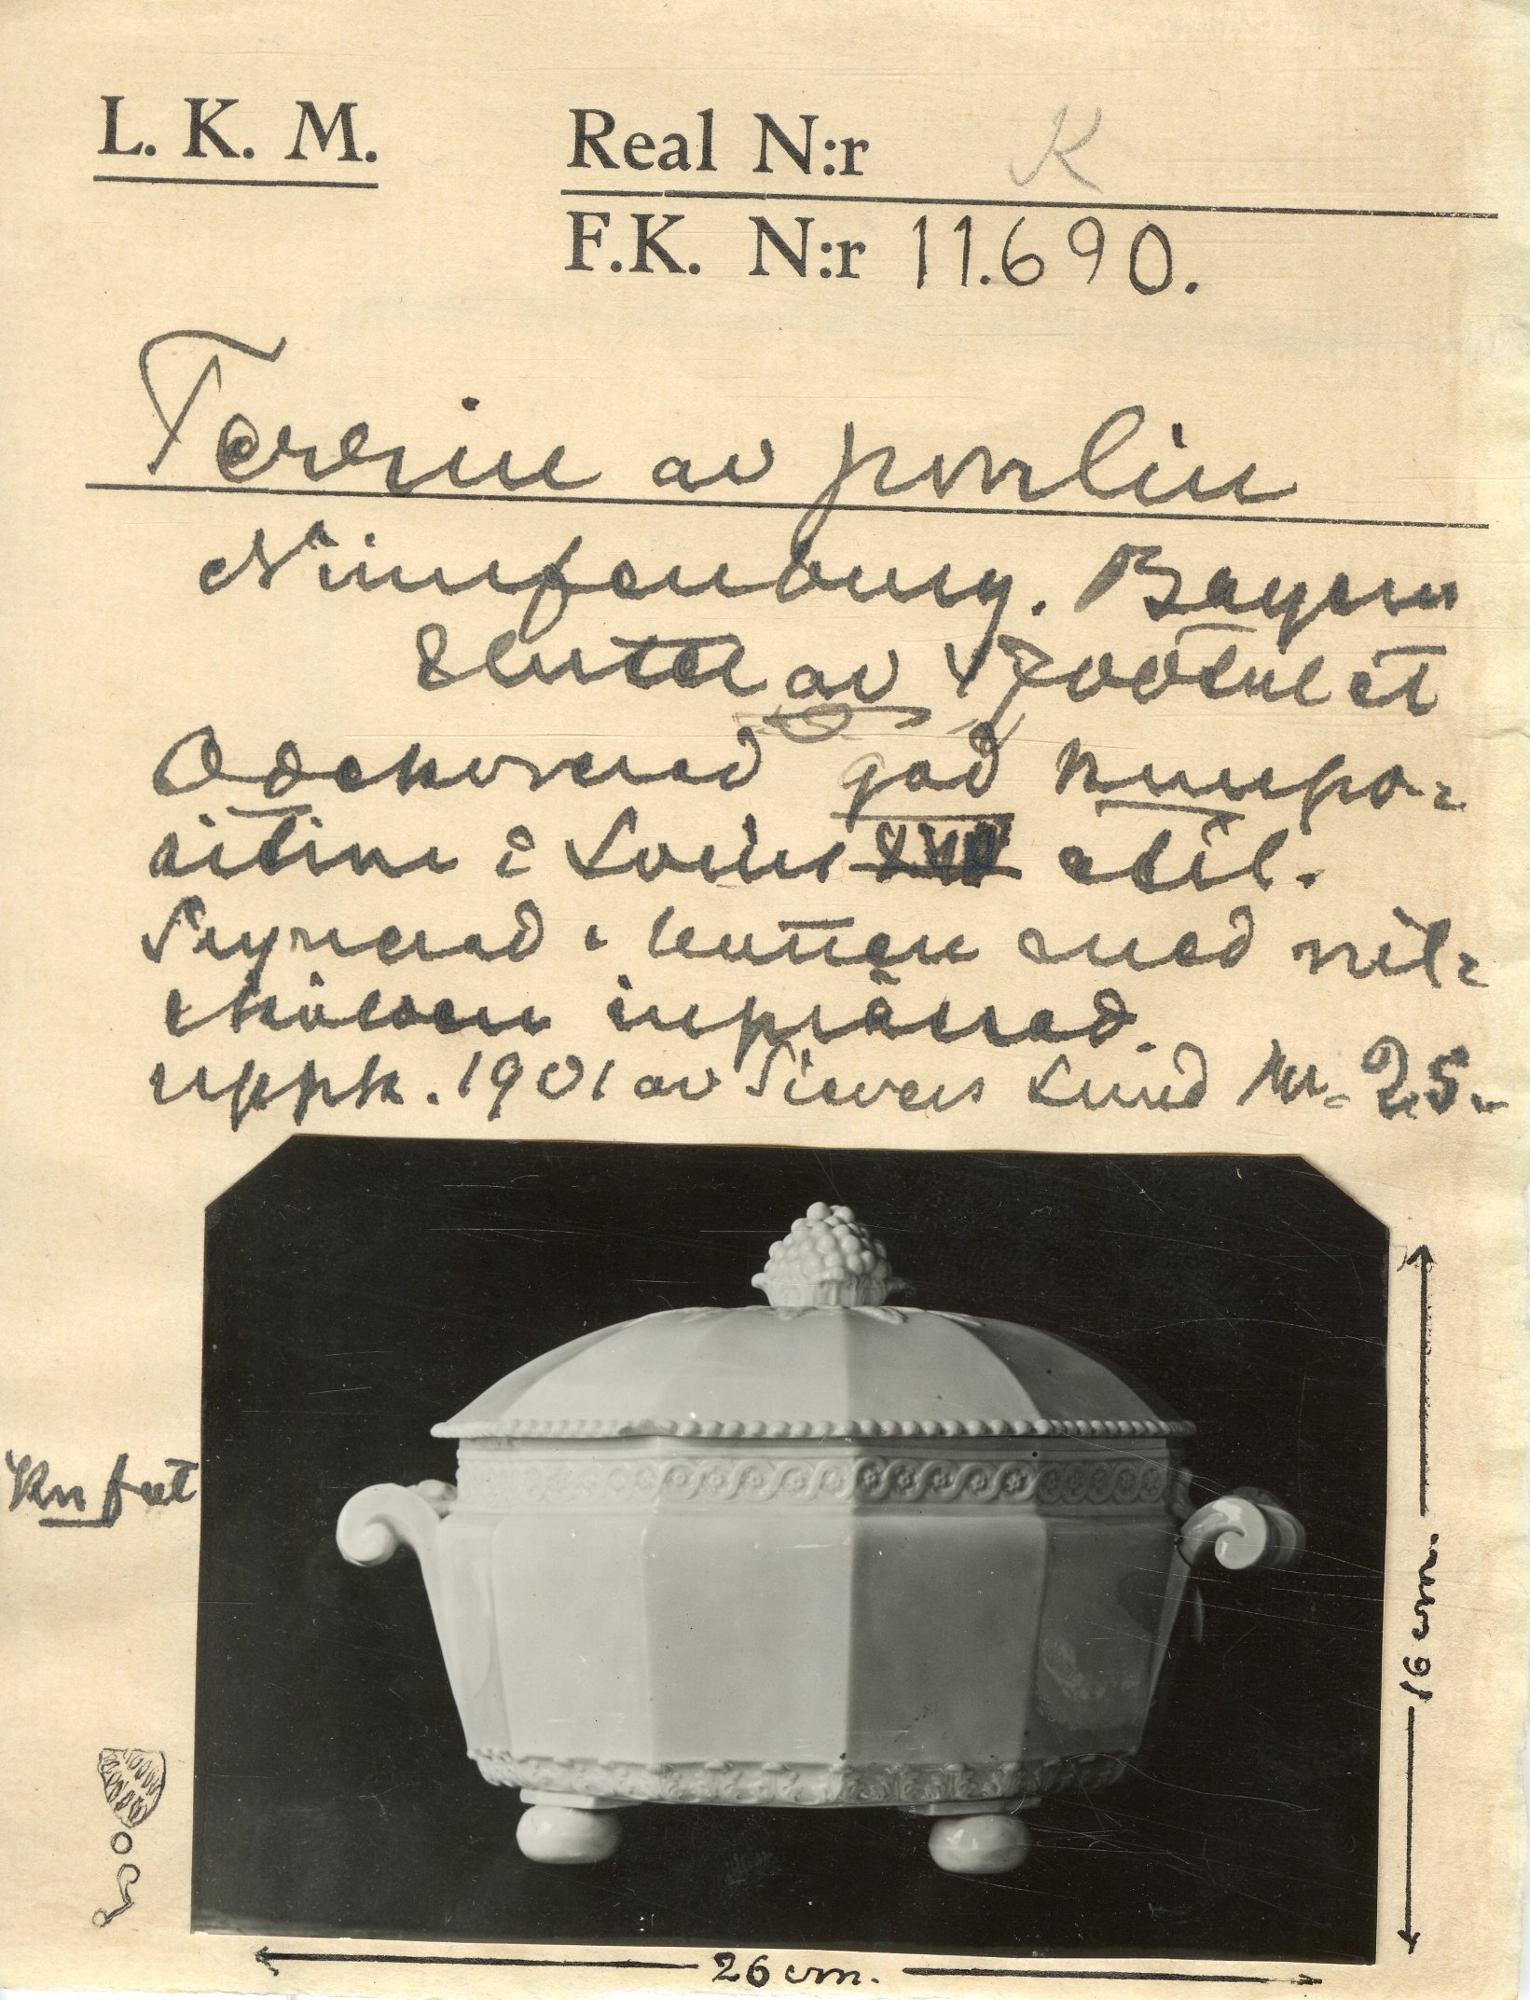 L. K. M.
Real N:r K
F.K. N:r 11.690.
Terrin av porslin
Nimfenburg. Bayern
Slutet av 1700talet
Odekorerad god kompo-
sition i Louis stil.
Signerad i botten med vil-
skölden inprässad.
uppk. 1901 av Sievers Lund Kr. 25.-
Kn fat
16 cm.
26 cm.